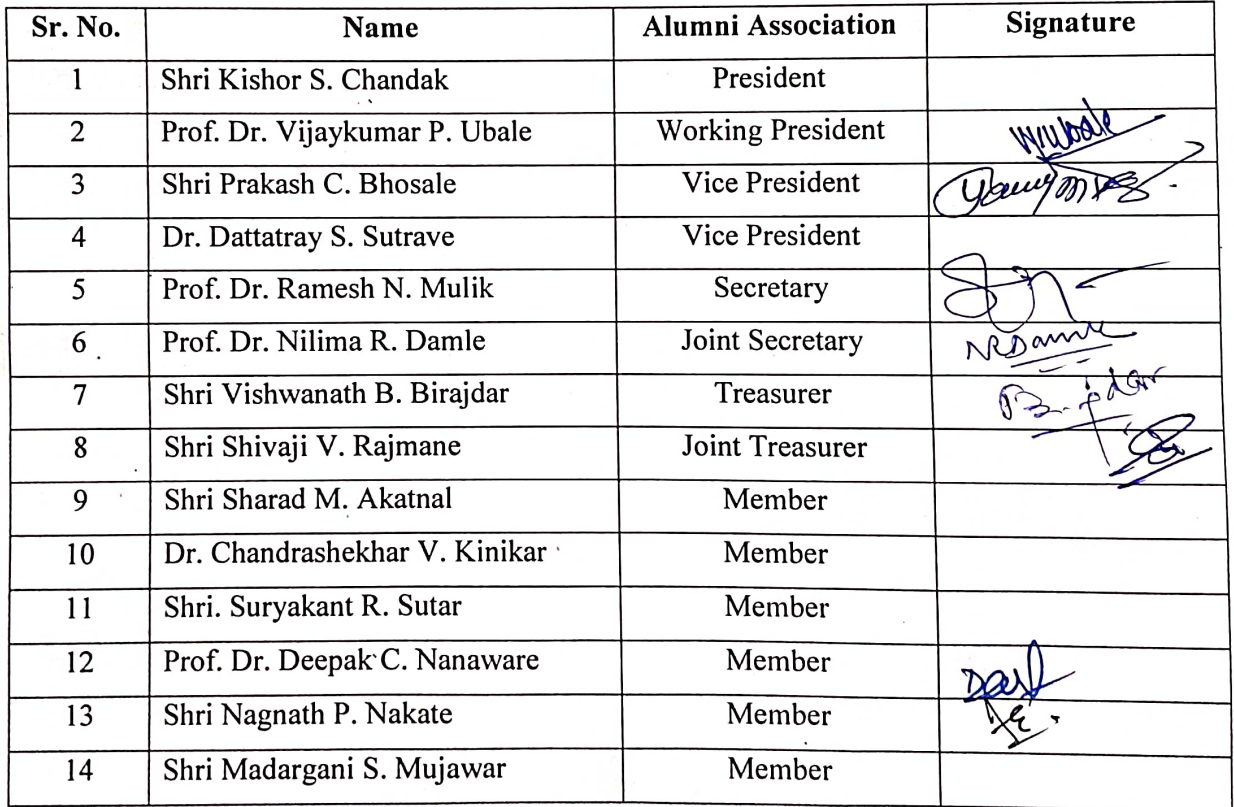 Sr. No. Name Alumni Association Signature
1 Shri Kishor S. Chandak President
2 Prof. Dr. Vijaykumar P. Ubale Working President
3 Shri Prakash C. Bhosale Vice President
4 Dr. Dattatray S. Sutrave Vice President
5 Prof. Dr. Ramesh N. Mulik Secretary
6 Prof. Dr. Nilima R. Damle Joint Secretary NRDamle
7 Shri Vishwanath B. Birajdar Treasurer
8 Shri Shivaji V. Rajmane Joint Treasurer
9 Shri Sharad M. Akatnal Member
10 Dr. Chandrashekhar V. Kinikar Member
11 Shri. Suryakant R. Sutar Member
12 Prof. Dr. Deepak C. Nanaware Member
13 Shri Nagnath P. Nakate Member
14 Shri Madargani S. Mujawar Member